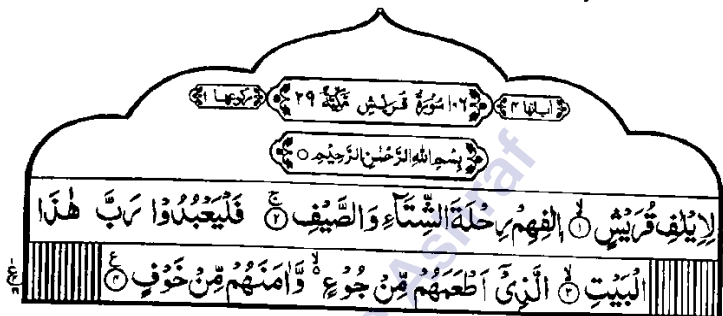 اٰیاتها ۴ ۱۰۶ سُوْرَةُ قُرَيْشٍ مَّكِّيَّةٌ ۲۹ ركوعها ۱
بِسْمِ اللّٰهِ الرَّحْمٰنِ الرَّحِيْمِ ○
لِاِيْلٰفِ قُرَيْشٍ ۙ۱ اٖلٰفِهِمْ رِحْلَةَ الشِّتَآءِ وَالصَّيْفِ ۚ۲ فَلْيَعْبُدُوْا رَبَّ هٰذَا
الْبَيْتِ ۙ۳ الَّذِيْٓ اَطْعَمَهُمْ مِّنْ جُوْعٍ ۙ وَّاٰمَنَهُمْ مِّنْ خَوْفٍ ࣖ۴
Ashraf